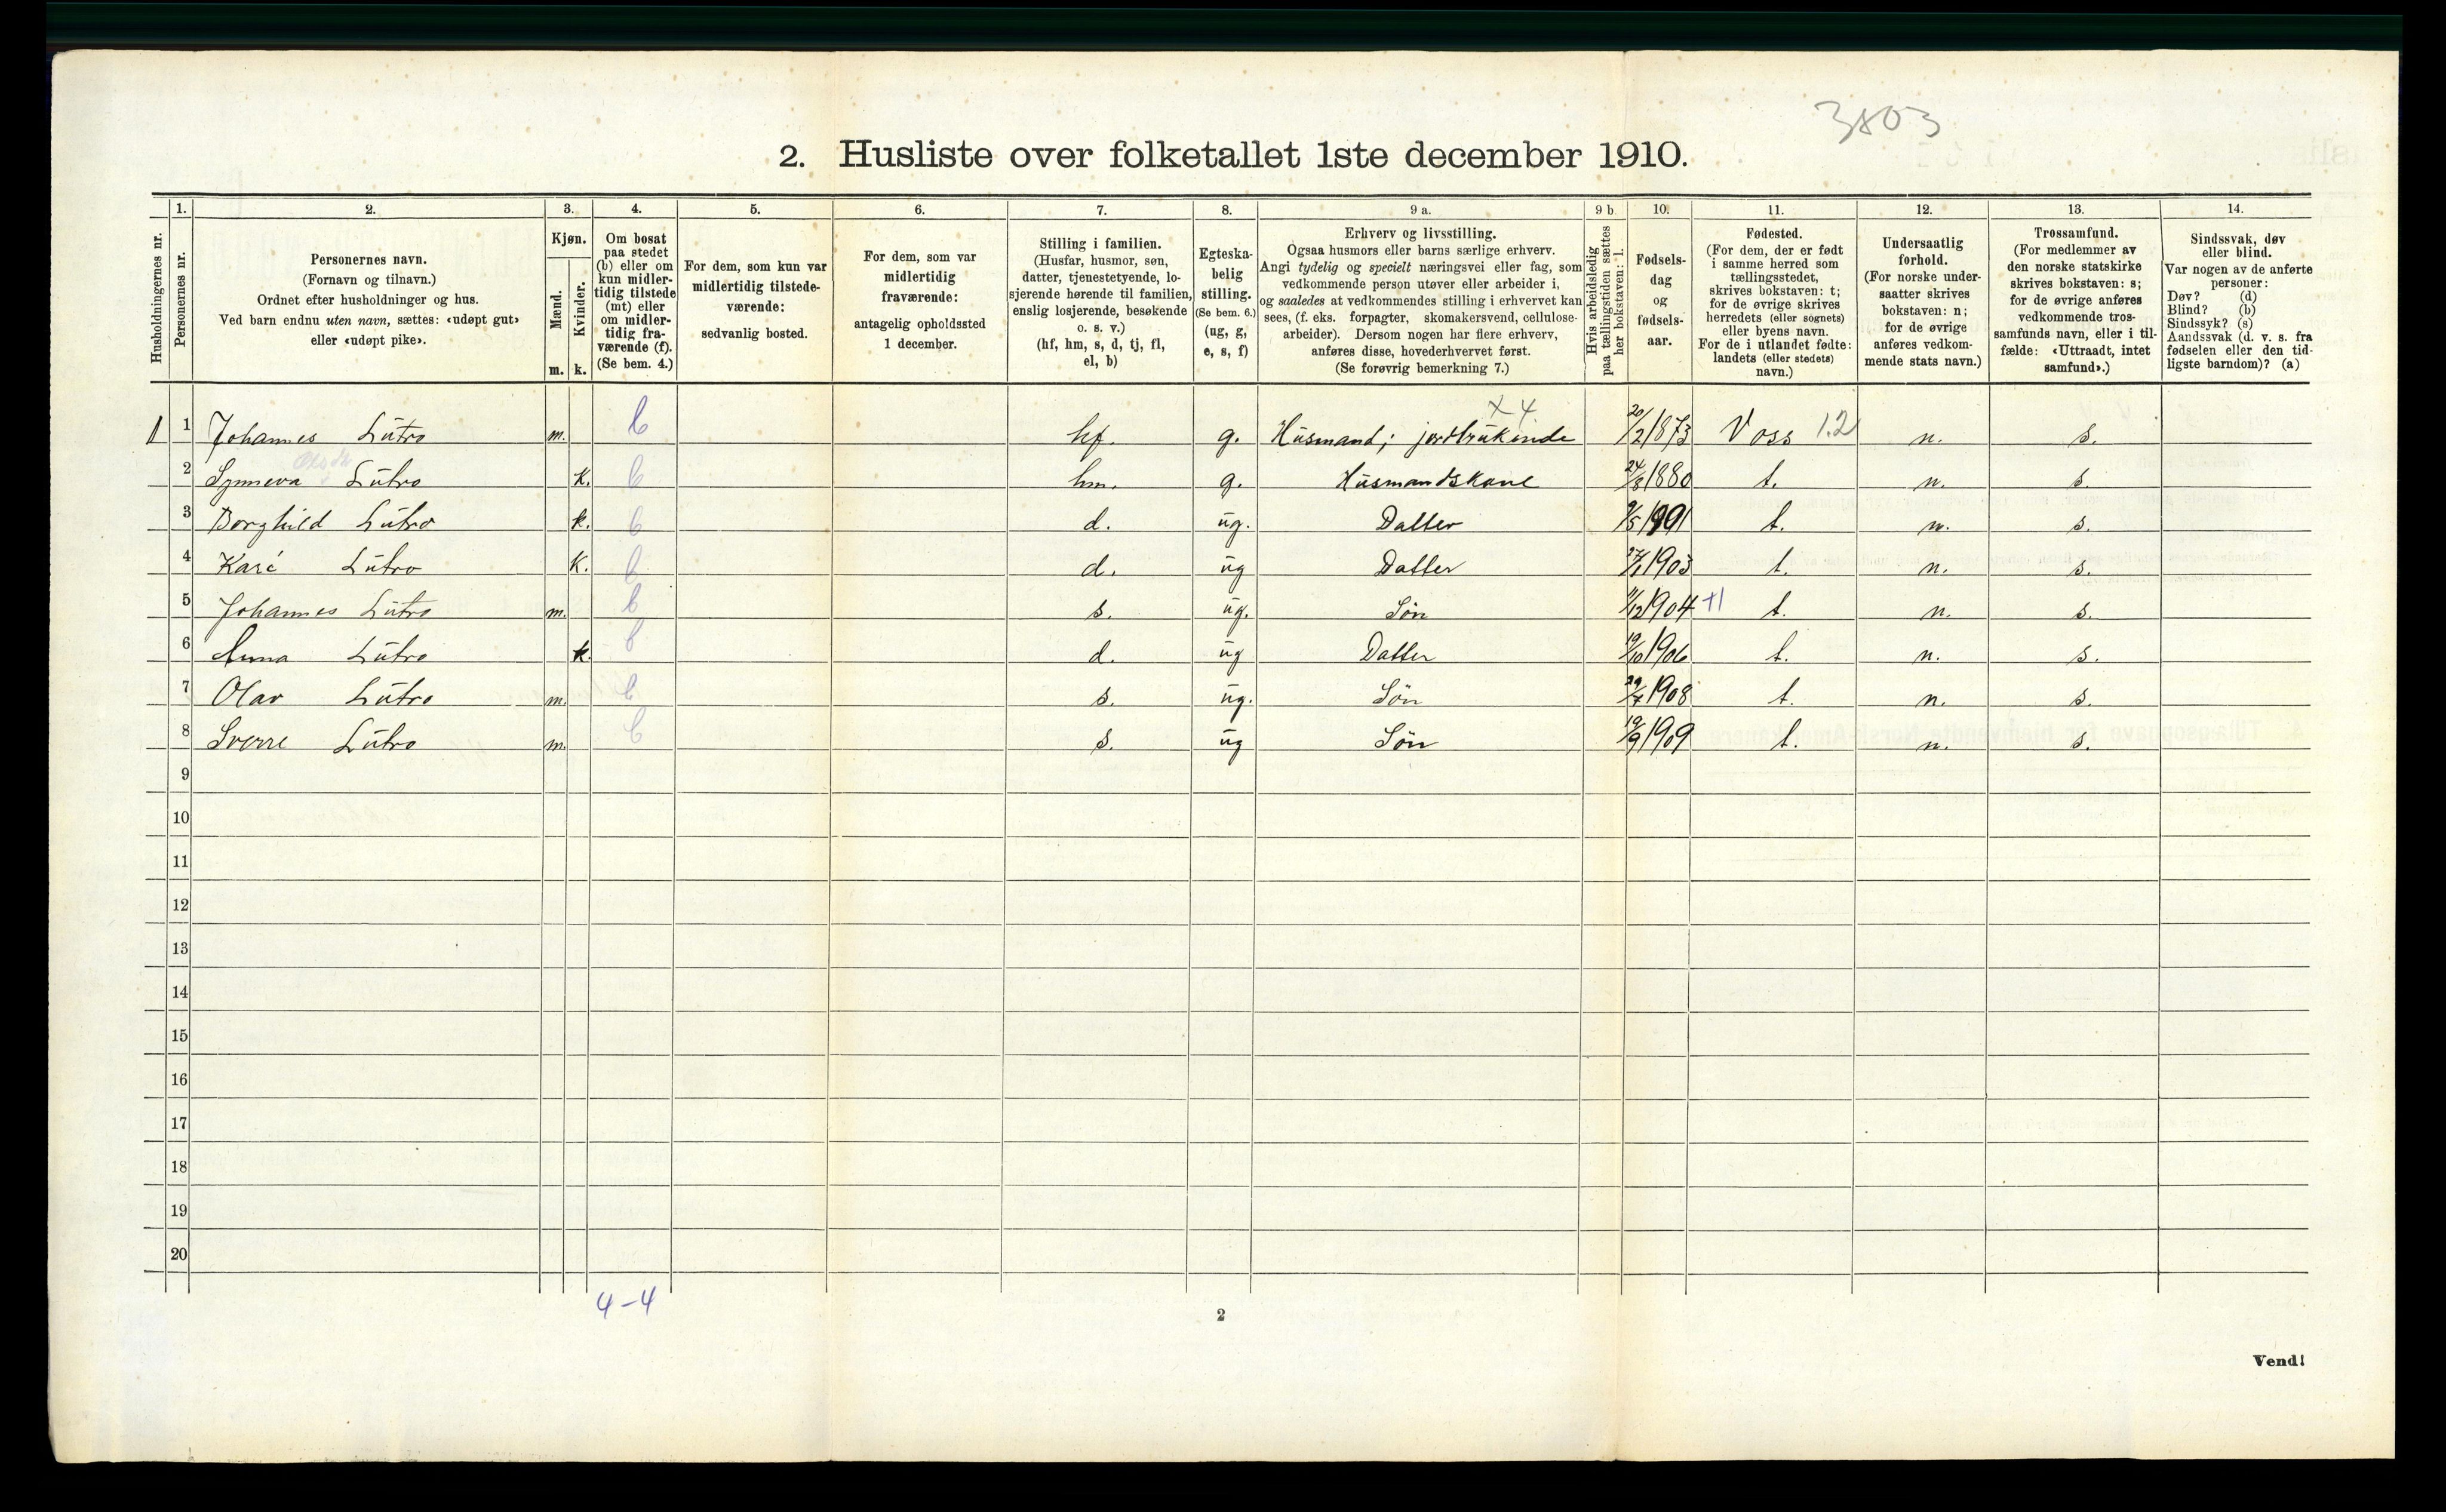 3803
2. Husliste over folketallet 1ste december 1910.
Husholdningernes nr.
1.
Personernes nr.
2.
Personernes navn.
(Fornavn og tilnavn.)
Ordnet efter husholdninger og hus.
Ved barn endnu uten navn, sættes: «udøpt gut»
eller «udøpt pike».
3.
Kjøn.
Mænd.
Kvinder.
m. k.
4.
Om bosat
paa stedet
(b) eller om
kun midler-
tidig tilstede
(mt) eller
om midler-
tidig fra-
værende (f).
(Se bem. 4.)
5.
For dem, som kun var
midlertidig tilstede-
værende:
sedvanlig bosted.
6.
For dem, som var
midlertidig
fraværende:
antagelig opholdssted
1 december.
7.
Stilling i familien.
(Husfar, husmor, søn,
datter, tjenestetyende, lo-
sjerende hørende til familien,
enslig losjerende, besøkende
o. s. v.)
(hf, hm, s, d, tj, fl,
el, b)
8.
Egteska-
belig
stilling.
(Se bem. 6.)
(ug, g,
e, s, f)
9 a.
Erhverv og livsstilling.
Ogsaa husmors eller barns særlige erhverv.
Angi tydelig og specielt næringsvei eller fag, som
vedkommende person utøver eller arbeider i,
og saaledes at vedkommendes stilling i erhvervet kan
sees, (f. eks. forpagter, skomakersvend, cellulose-
arbeider). Dersom nogen har flere erhverv,
anføres disse, hovederhvervet først.
(Se forøvrig bemerkning 7.)
9 b
Hvis arbeidsledig
paa tællingstiden sættes
her bokstaven: l.
10.
Fødsels-
dag
og
fødsels-
aar.
11.
Fødested.
(For dem, der er født
i samme herred som
tællingsstedet,
skrives bokstaven: t;
for de øvrige skrives
herredets (eller sognets)
eller byens navn.
For de i utlandet fødte:
landets (eller stedets)
navn.)
12.
Undersaatlig
forhold.
(For norske under-
saatter skrives
bokstaven: n;
for de øvrige
anføres vedkom-
mende stats navn.)
13.
Trossamfund.
(For medlemmer av
den norske statskirke
skrives bokstaven: s;
for de øvrige anføres
vedkommende tros-
samfunds navn, eller i til-
fælde: «Uttraadt, intet
samfund».)
14.
Sindssvak, døv
eller blind.
Var nogen av de anførte
personer:
Døv? (d)
Blind? (b)
Sindssyk? (s)
Aandssvak (d. v. s. fra
fødselen eller den tid-
ligste barndom)? (a)
X 4
1 1 Johannes Lütro m. b hf. g. Hüsmand; jordbrükende 20/2 1873 Voss 1.2 n. s.
2 Synneva Lütro k. b hm. g. Hüsmandskone 24/8 1880 t. n. s.
3 Borghild Lütro k. b d. üg. Datter 9/5 1901 t. n. s.
4 Kari Lütro k. b d. üg Datter 27/1 1903 t. n. s.
5 Johannes Lütro m. b s. üg. Sön 11/12 1904 +1 t. n. s.
6 Anna Lütro k. b d. üg Datter 19/10 1906 t. n. s.
7 Olav Lütro m. b s. üg. Sön 29/7 1908 t. n. s.
8 Sverre Lütro m. b s. üg Sön 19/9 1909 t. n. s.
9
10
11
12
13
14
15
16
17
18
19
20
4-4
2
Vend!